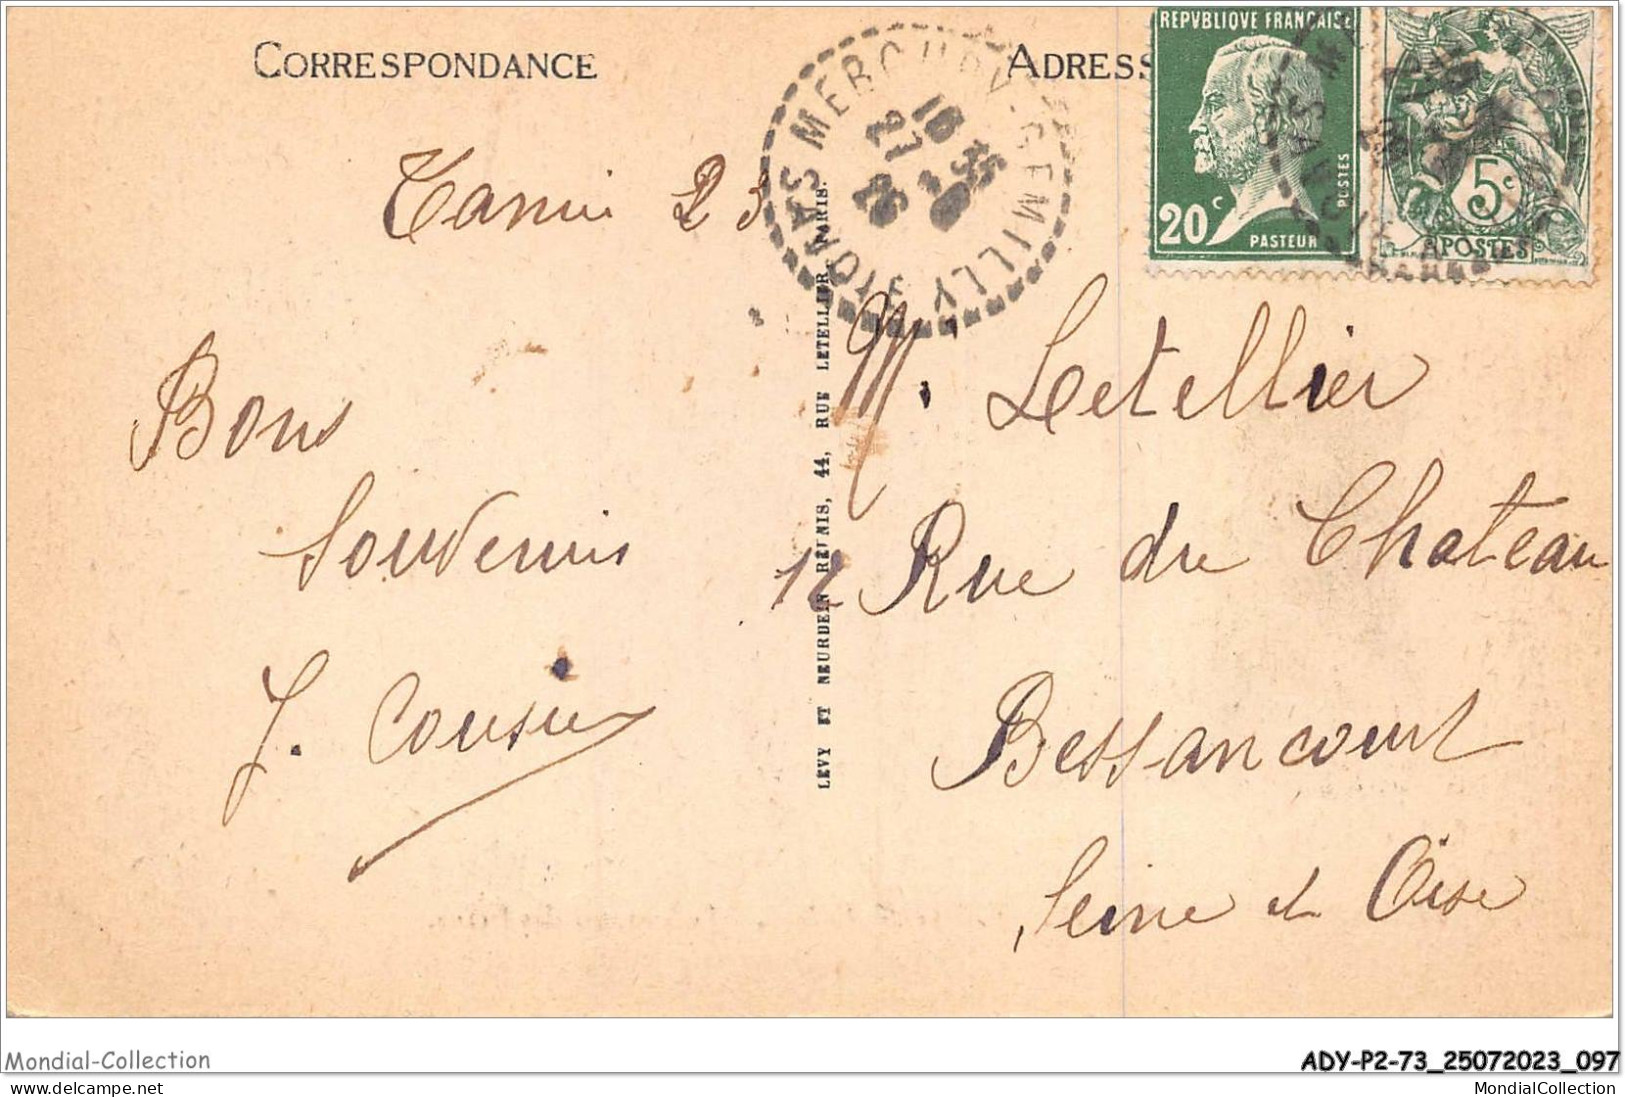 CORRESPONDANCE
ADRESS
REPVBLIQVE FRANÇAISE
20c
PASTEUR
POSTES
5c
POSTES
16 35
27 -9
26
SAVOIE
LEVY ET NEURDEIN REUNIS, 44, RUE LETELLIER, PARIS.
23
Bons
Souvenirs
J. Cousin
M. Letellier
12 Rue du Chateau
Bessancourt
Seine et Oise
Mondial-Collection
ADY-P2-73_25072023_097
delcampe.net
MondialCollection